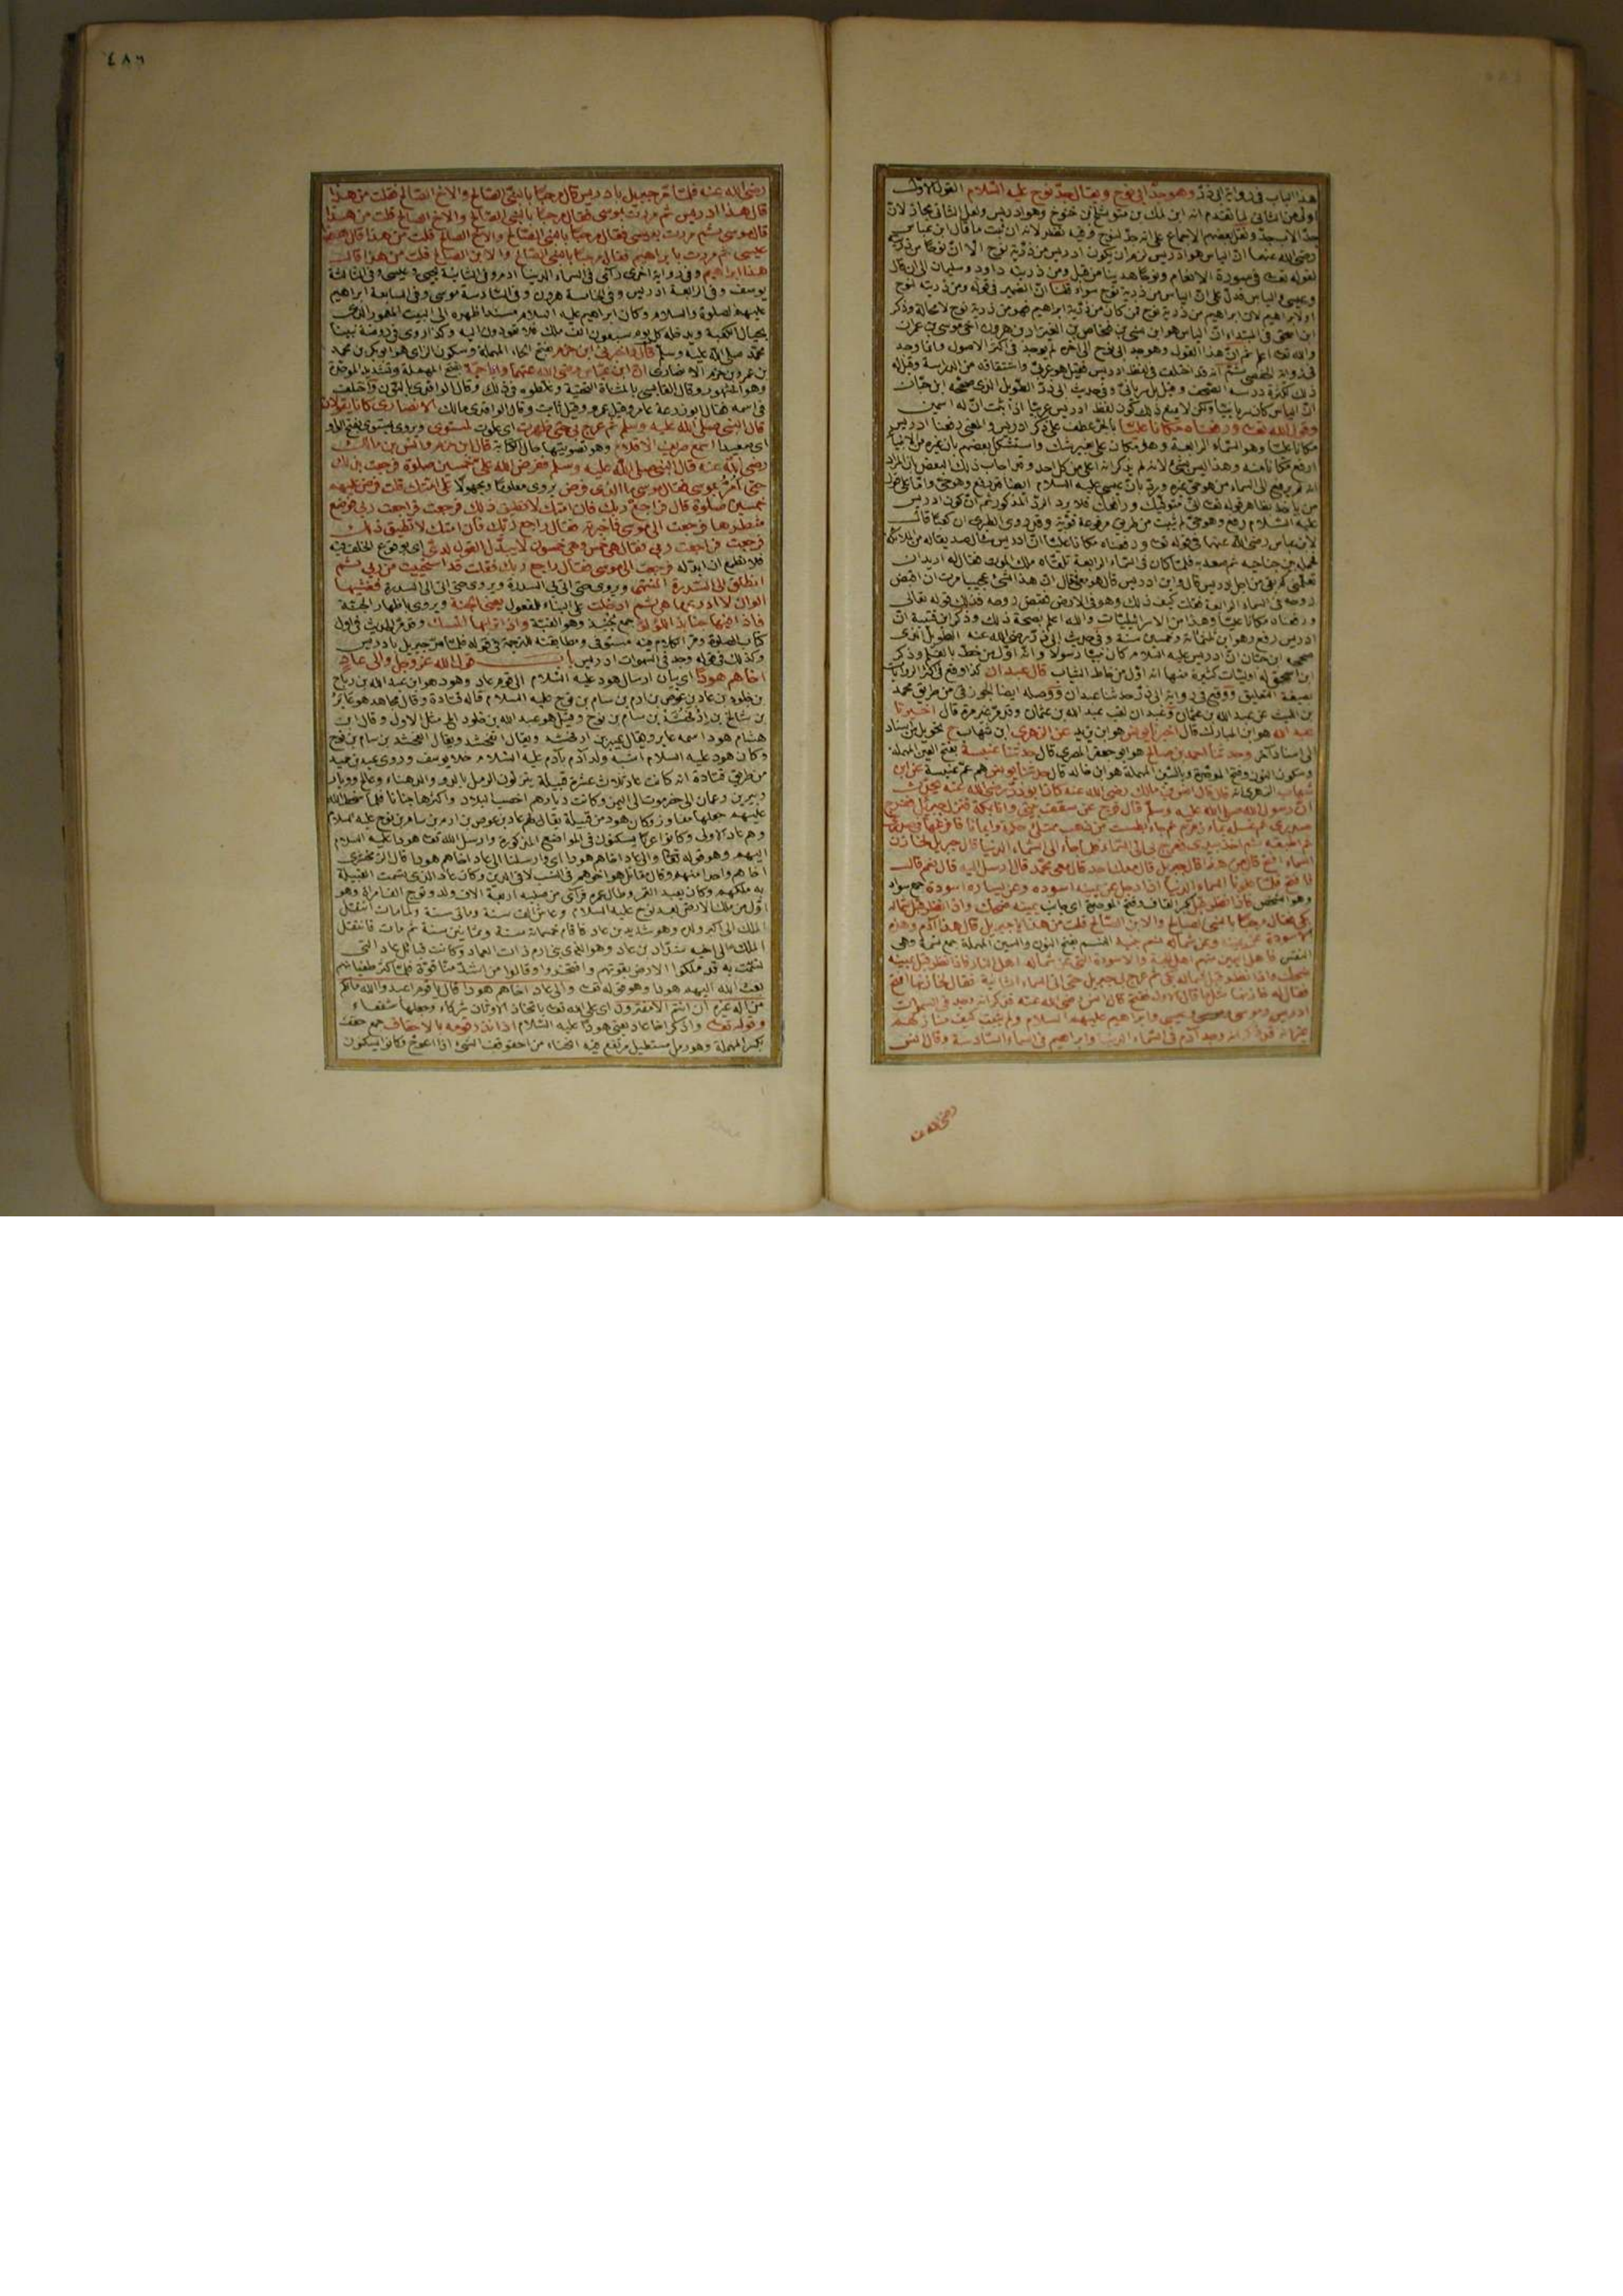 هذا الباب في رواية ابي ذر وهو جد ابي نوح ويقال جد نوح عليه السلام القول الاول
اولى من الثاني لما تقدم انه ابن لمك بن متوشلخ بن خنوخ وهو ادريس ولعل الثاني مجاز لان
جد الاب جد ونقل بعضهم الاجماع على انه جد لنوح وفيه نظر لانه ان ثبت ما قال ابن عباس
رضي الله عنهما ان الياس هو ادريس لزم ان يكون ادريس من ذرية نوح لا ان نوحا من ذريته
لقوله تعالى في سورة الانعام ونوحا هدينا من قبل ومن ذريته داود وسليمان الى ان قال
وعيسى والياس فدل على ان الياس من ذرية نوح سواء قلنا ان الضمير في قوله ومن ذريته لنوح
او لابراهيم لان ابراهيم من ذرية نوح فمن كان من ذرية ابراهيم فهو من ذرية نوح لا محالة وذكر
ابن اسحق في المبتداء ان الياس هو ابن بن فنحاص بن العيزار بن هرون اخي موسى بن عمران
والله تعالى اعلم ثم ان هذا القول وهو جد ابي نوح الى آخره لم يوجد في اكثر الاصول وانما وجد
في رواية الحفصي ثم انه قد اختلف في لفظ ادريس فقيل هو عربي واشتقاقه من الدراسة وقيل له
ذلك لكثرة درسه الصحف وقيل بل سرياني وفي حديث ابي ذر الطويل الذي صححه ابن حبان
انه كان سريانيا ولكن لا يمنع ذلك كون لفظ ادريس عربيا اذا ثبت ان له اسمين
وقول الله تعالى ورفعناه مكانا عليا بالجر عطف على ذكر ادريس والمعنى رفعنا ادريس
مكانا عليا وهو السماء الرابعة وهو مكان علي بغير شك واستشكل بعضهم بان غيره من الانبياء
ارفع مكانا منه وهذا ليس بشيء لانه لم يذكر انه اعلى من كل احد وقد اجاب ذلك البعض ان المراد
انه لم يرفع الى السماء من هو حي غيره ورد بان عيسى عليه السلام ايضا قد رفع وهو حي واما على قول
من يأخذ بظاهر قوله تعالى اني متوفيك ورافعك فلا يرد الرد المذكور ثم ان كون ادريس
عليه السلام رفع وهو حي لم يثبت من طريق مرفوعة قوية وقد روى الطبري ان كعبا قال
لابن عباس رضي الله عنهما في قوله تعالى ورفعناه مكانا عليا ان ادريس سأل صديقا له من الملائكة
فحمله بين جناحيه ثم صعد به فلما كان في السماء الرابعة تلقاه ملك الموت فقال له اريد ان
تعلمني كم بقي من اجل ادريس قال واين ادريس قال هو معي فقال ان هذا لشيء عجيب امرت ان اقبض
روحه في السماء الرابعة فقلت كيف ذلك وهو في الارض فقبض روحه فذلك قوله تعالى
ورفعناه مكانا عليا وهذا من الاسرائيليات والله اعلم بصحة ذلك وذكر ابن قتيبة ان
ادريس رفع وهو ابن ثلثمائة وخمسين سنة وفي حديث ابي ذر رضي الله عنه الطويل الذي
صححه ابن حبان ان ادريس عليه السلام كان نبيا رسولا وانه اول من خط بالقلم وذكر
ابن اسحق له اوليات كثيرة منها انه اول من خاط الثياب قال عبدان كذا وقع في اكثر الروايات
بصيغة التعليق ووقع في رواية ابي ذر حدثنا عبدان ووصله ايضا الجوزقي من طريق محمد
بن الليث عن عبد الله بن عثمان وعبدان لقب عبد الله بن عثمان وقد مر غير مرة قال اخبرنا
عبد الله هو ابن المبارك قال اخبرنا يونس هو ابن يزيد عن الزهري ابن شهاب ح تحويل من اسناد
الى اسناد آخر وحدثنا احمد بن صالح هو ابو جعفر المصري قال حدثنا عنبسة بفتح العين المهملة
وسكون النون وفتح الموحدة وبالسين المهملة هو ابن خالد قال حدثنا يونس هو عم عنبسة عن ابن
شهاب الزهري انه قال قال انس بن مالك رضي الله عنه كان ابو ذر رضي الله عنه يحدث
ان رسول الله صلى الله عليه وسلم قال فرج عن سقف بيتي وانا بمكة فنزل جبريل ففرج
صدري ثم غسله بماء زمزم ثم جاء بطست من ذهب ممتلئ حكمة وايمانا فافرغها في صدري
ثم اطبقه ثم اخذ بيدي فعرج بي الى السماء فلما جاء الى السماء الدنيا قال جبريل لخازن
السماء افتح قال من هذا قال جبريل قال معك احد قال معي محمد قال ارسل اليه قال نعم قال
فافتح فلما علونا السماء الدنيا اذا رجل عن يمينه اسودة وعن يساره اسودة جمع سواد
وهو الشخص فاذا نظر قبل بكسر القاف وفتح الموحدة اي جانب يمينه ضحك واذا نظر قبل شماله
بكى فقال مرحبا بالنبي الصالح والابن الصالح قلت من هذا يا جبريل قال هذا آدم وهذه
الاسودة عن يمينه وعن شماله نسم بنيه النسم بفتح النون والسين المهملة جمع نسمة وهي
النفس فاهل اليمين منهم اهل الجنة والاسودة التي عن شماله اهل النار فاذا نظر قبل يمينه
ضحك واذا نظر قبل شماله بكى ثم عرج بي جبريل حتى اتى السماء الثانية فقال لخازنها افتح
فقال له خازنها مثل ما قال الاول ففتح قال انس رضي الله عنه فذكر انه وجد في السموات
ادريس وموسى وعيسى وابراهيم عليهم السلام ولم يثبت كيف منازلهم
غير انه قد ذكر انه وجد آدم في السماء الدنيا وابراهيم في السماء السادسة وقال انس
رضي الله عنه
٤٨٦
رضي الله عنه فلما مر جبريل بادريس قال مرحبا بالنبي الصالح والاخ الصالح فقلت من هذا
قال هذا ادريس ثم مررت بموسى فقال مرحبا بالنبي الصالح والاخ الصالح قلت من هذا
قال موسى ثم مررت بعيسى فقال مرحبا بالنبي الصالح والاخ الصالح قلت من هذا قال
عيسى ثم مررت بابراهيم فقال مرحبا بالنبي الصالح والابن الصالح قلت من هذا قال
هذا ابراهيم وفي رواية اخرى رأى في السماء الدنيا آدم وفي الثانية يحيى وعيسى وفي الثالثة
يوسف وفي الرابعة ادريس وفي الخامسة هرون وفي السادسة موسى وفي السابعة ابراهيم
عليهم الصلوة والسلام وكان ابراهيم عليه السلام مسندا ظهره الى البيت المعمور الذي
بحيال الكعبة ويدخله كل يوم سبعون الف ملك فلا يعودون اليه وكذا روى في روضة نبينا
محمد صلى الله عليه وسلم قال واخبرني ابن حزم بفتح الحاء المهملة وسكون الزاي هو ابو بكر بن محمد
بن عمرو بن حزم الانصاري ان ابن عباس رضي الله عنهما وابا حبة بفتح المهملة وتشديد الموحدة
وهو المشهور وقال القابسي بالمثناة التحتية وغلطوه في ذلك وقال الواقدي بالنون واختلف
في اسمه فقال ابو زرعة عامر وقيل عمرو وقيل ثابت وقال الواقدي مالك الانصاري كانا يقولان
قال النبي صلى الله عليه وسلم ثم عرج بي حتى ظهرت اي علوت لمستوى ويروى بمستوى بفتح الواو
اي مصعدا اسمع صريف الاقلام وهو تصويتها حال الكتابة قال ابن حزم وانس بن مالك
رضي الله عنه قال النبي صلى الله عليه وسلم ففرض الله علي خمسين صلوة فرجعت بذلك
حتى امر بموسى فقال موسى ما الذي فرض يروى معلوما ومجهولا على امتك قلت فرض عليهم
خمسين صلوة قال فراجع ربك فان امتك لا تطيق ذلك فرجعت فراجعت ربي فوضع
شطرها فرجعت الى موسى فاخبرته فقال راجع ربك فان امتك لا تطيق ذلك
فرجعت فراجعت ربي فقال هي خمس وهي خمسون لا يبدل القول لدي اي بوقوع الخلف فيه
فرجعت الى موسى فقال راجع ربك فقلت قد استحييت من ربي ثم
انطلق الى السدرة المنتهى ويروى حتى اتى بي السدرة ويروى حتى اتى الى السدرة فغشيها
الوان لا ادري ما هي ثم ادخلت على البناء للمفعول يعني الجنة ويروى باظهار الجنة
فاذا فيها جنابذ اللؤلؤ جمع جنبذ وهو القبة واذا ترابها المسك وقد مر الحديث في اول
كتاب الصلوة ومر الكلام فيه مستوفى ومطابقته للترجمة في قوله فلما مر جبريل بادريس
وكذلك في قوله وجد في السموات ادريس باب قول الله عز وجل والى عاد
اخاهم هودا اي بيان ارسال هود عليه السلام الى قوم عاد وهود هو ابن عبد الله بن رباح
بن خلود بن عاد بن عوص بن ارم بن سام بن نوح عليه السلام قاله قتادة وقال مجاهد هو عابر
بن شالخ بن ارفخشذ بن سام بن نوح وقيل هو عبد الله بن خلود الى مثل الاول وقال ابن
هشام هود اسمه عابر ويقال عيبر بن ارفخشد ويقال الفخشد بن سام بن نوح
وكان هود عليه السلام اشبه ولد آدم بآدم عليه السلام خلا يوسف وروى عبد بن حميد
من طريق قتادة انه كانت عاد ثلاث عشرة قبيلة ينزلون الرمل بالدو والدهناء وعالج ووبار
ويبرين وعمان الى حضرموت الى اليمن وكانت ديارهم اخصب البلاد واكثرها جنانا فلما سخط الله
عليهم جعلها مفاوز وكان هود من قبيلة يقال لهم عاد بن عوص بن ارم بن سام بن نوح عليه السلام
وهم عاد الاولى وكانوا عربا يسكنون في المواضع المذكورة وارسل الله تعالى هودا عليه السلام
اليهم وهو قوله تعالى والى عاد اخاهم هودا اي وارسلنا الى عاد اخاهم هودا قال الزمخشري
اخاهم واحدا منهم وكان قائل هو اخوهم في النسب لا في الدين وكان عاد الذي تسمت القبيلة
به ملكهم وكان يعبد القمر وطال عمره فرأى من صلبه اربعة الاف ولد وتزوج الف امرأة وهو
اول من ملك الارض بعد نوح عليه السلام وعاش الف سنة ومائتي سنة ولما مات انتقل
الملك الى اكبر ولده وهو شديد بن عاد فاقام خمسمائة سنة وثمانين سنة ثم مات فانتقل
الملك الى اخيه شداد بن عاد وهو الذي بنى ارم ذات العماد وكانت قبائل عاد التي
تسمت به قد ملكوا الارض بقوتهم وافتخروا وقالوا من اشد منا قوة فلما كثر طغيانهم
بعث الله اليهم هودا وهو قوله تعالى والى عاد اخاهم هودا قال يا قوم اعبدوا الله ما لكم
من اله غيره ان انتم الا مفترون اي على الله تعالى باتخاذ الاوثان شركاء وجعلها شفعاء
وقوله تعالى واذكر اخا عاد يعني هودا عليه السلام اذ انذر قومه بالاحقاف جمع حقف
بكسر المهملة وهو رمل مستطيل مرتفع فيه انحناء من احقوقف الشيء اذا اعوج وكانوا يسكنون